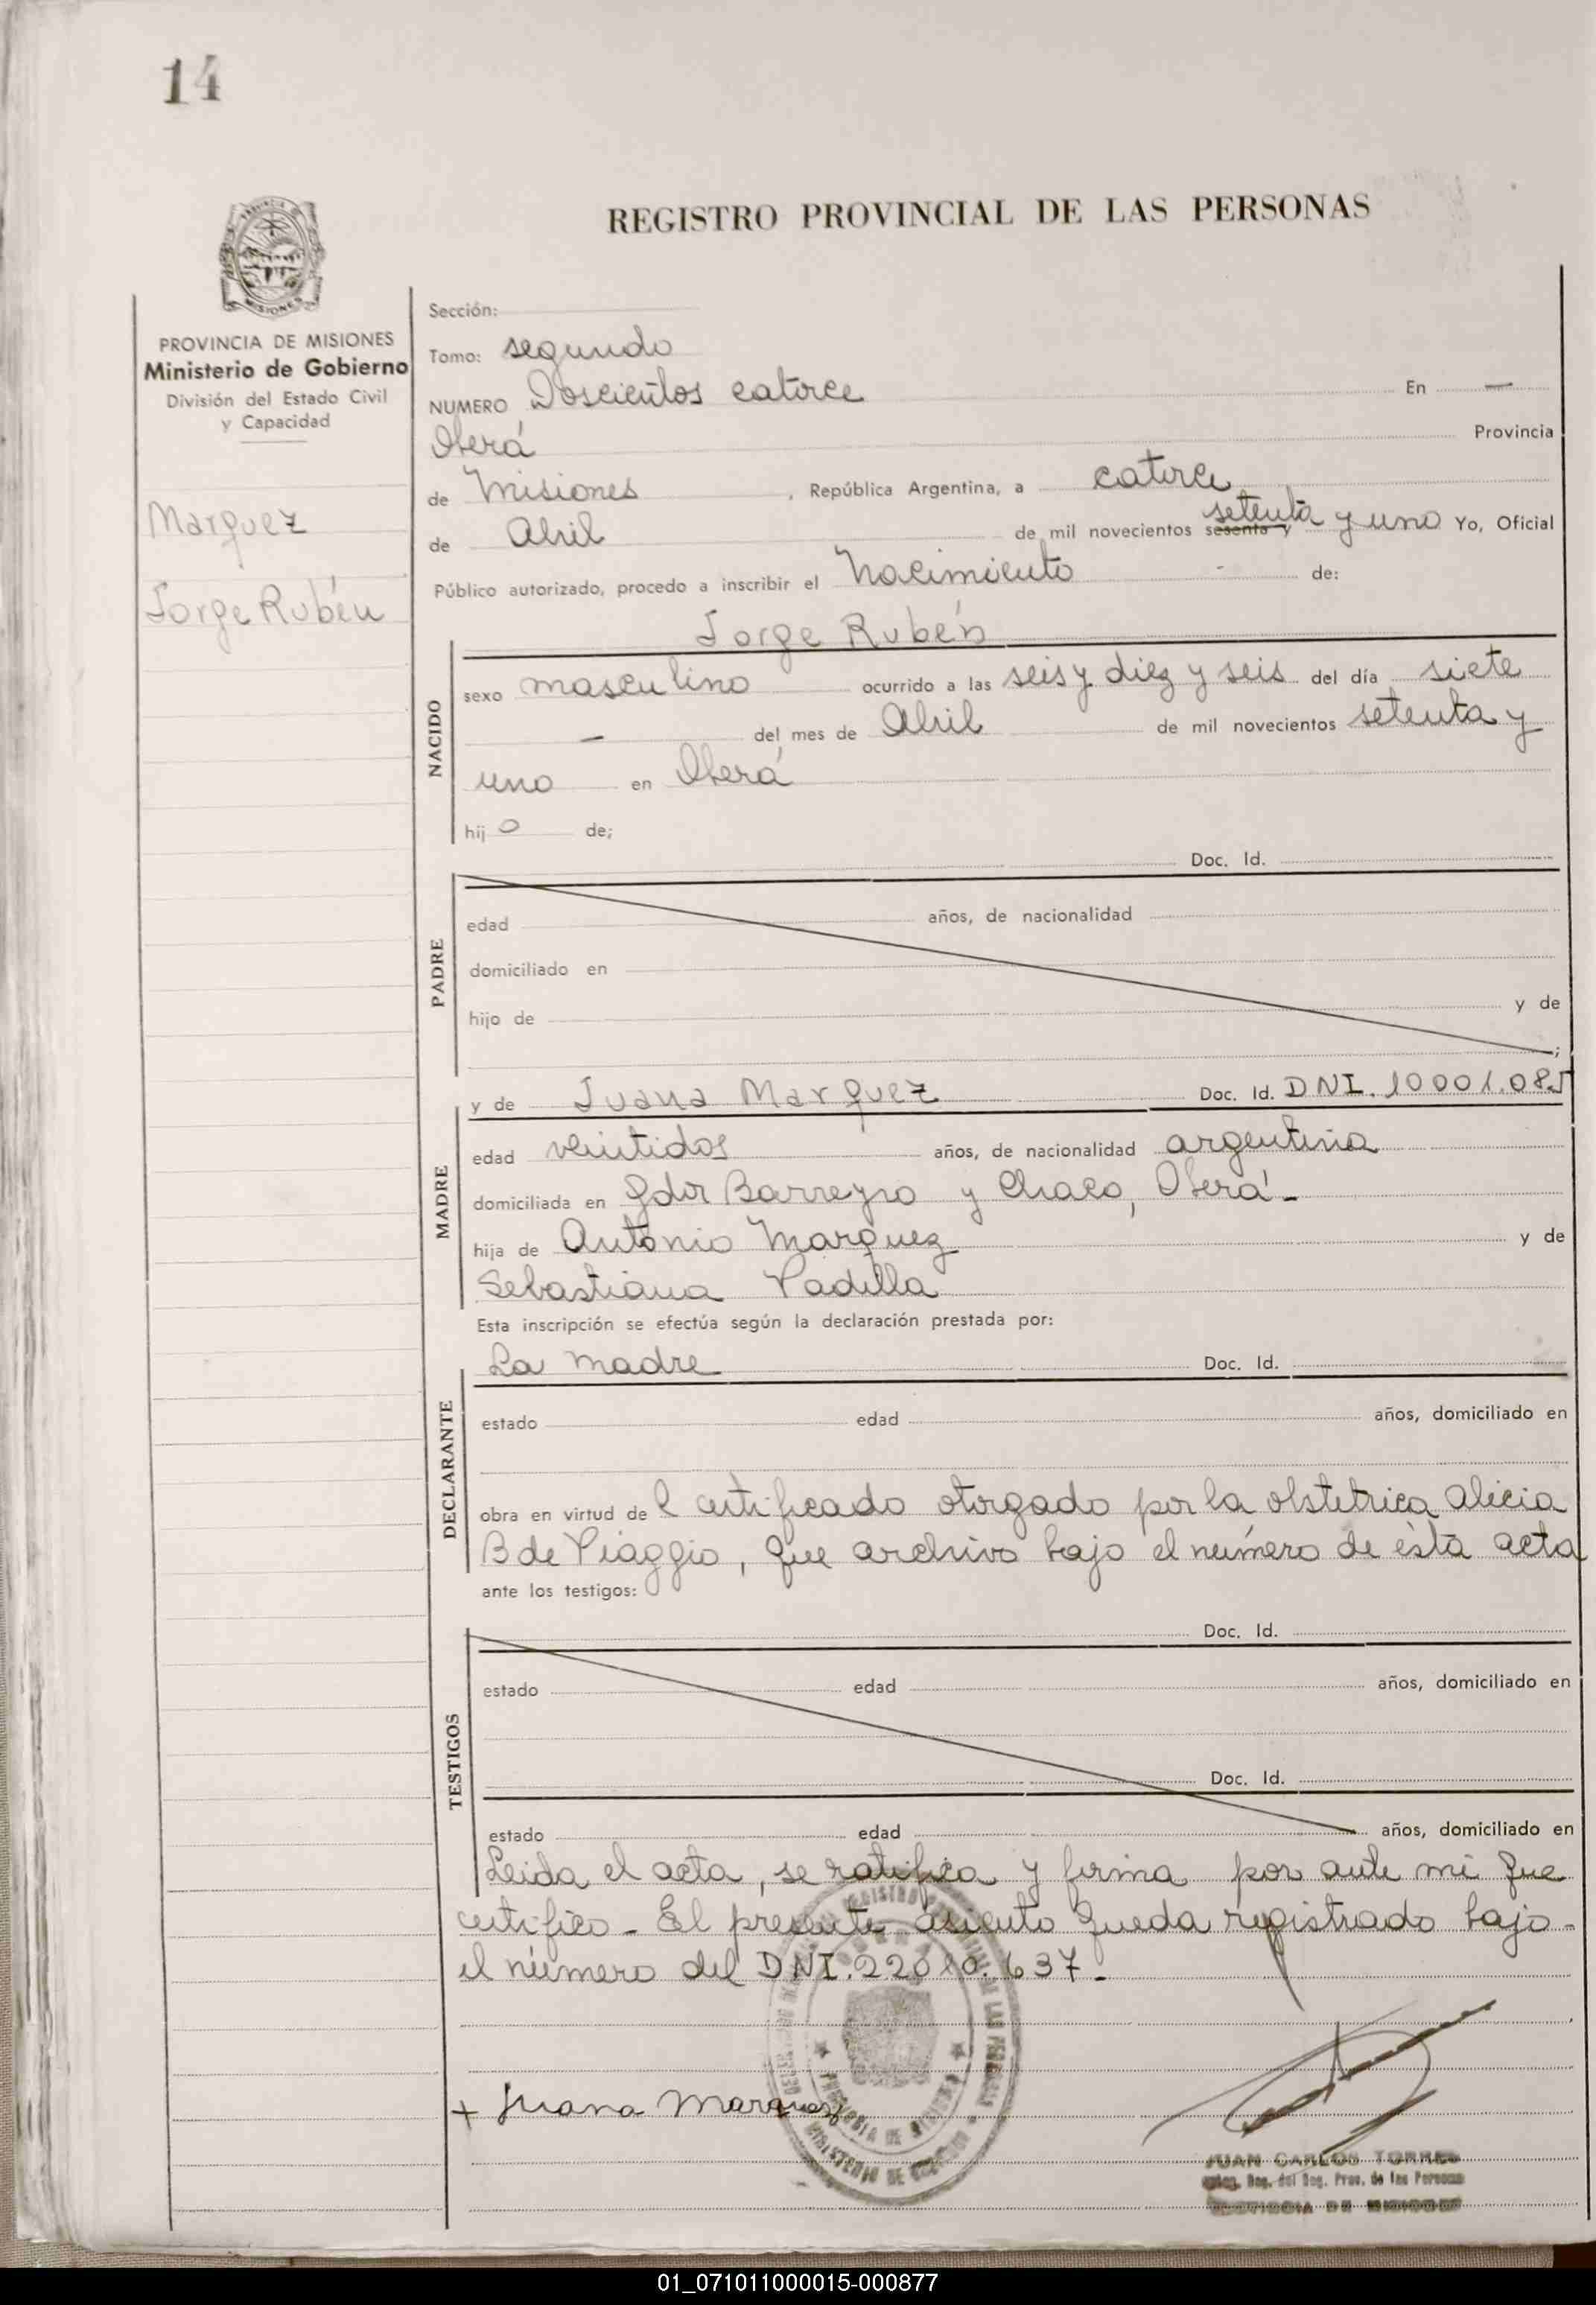 14
REGISTRO PROVINCIAL DE LAS PERSONAS
MISIONES
PROVINCIA DE MISIONES
Ministerio de Gobierno
División del Estado Civil
y Capacidad
Marquez
Jorge Rubén
Sección:
Tomo: segundo
NUMERO Doscientos catorce En —
Oberá Provincia
de Misiones , República Argentina, a catorce
de Abril de mil novecientos sesenta y setenta y uno Yo, Oficial
Público autorizado, procedo a inscribir el Nacimiento - de:
Jorge Rubén
NACIDO
sexo masculino ocurrido a las seis y diez y seis del día siete
— del mes de Abril de mil novecientos setenta y
uno en Oberá
hij o de;
Doc. Id.
PADRE
edad años, de nacionalidad
domiciliado en
hijo de y de
;
y de Juana Marquez Doc. Id. DNI. 10001.085
MADRE
edad veintidos años, de nacionalidad argentina
domiciliada en Gdor Barreyro y Chaco, Oberá-
hija de Antonio Marquez y de
Sebastiana Padilla
Esta inscripción se efectúa según la declaración prestada por:
La madre Doc. Id.
DECLARANTE
estado edad años, domiciliado en
obra en virtud de l certificado otorgado por la obstetrica Alicia
B de Piaggio, que archivo bajo el número de ésta acta
ante los testigos:
Doc. Id.
TESTIGOS
estado edad años, domiciliado en
Doc. Id.
estado edad años, domiciliado en
Leida el acta, se ratifica y firma por ante mi que
certifico - El presente asiento queda registrado bajo -
el número del DNI. 637-
+ Juana Marquez
MINISTERIO DE GOBIERNO
PROVINCIA DE MISIONES
JUAN CARLOS TORRES
Reg. del Reg. Prov. de las Personas
PROVINCIA DE MISIONES
01_071011000015-000877